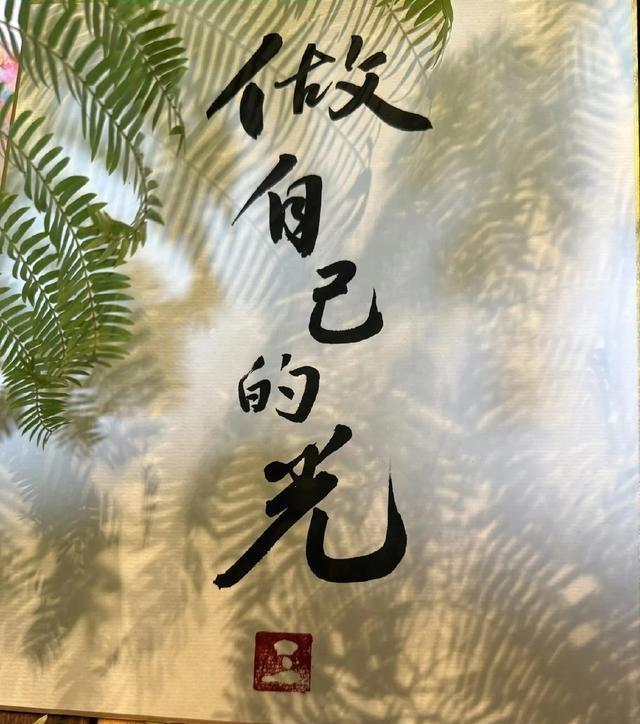 做自己的光